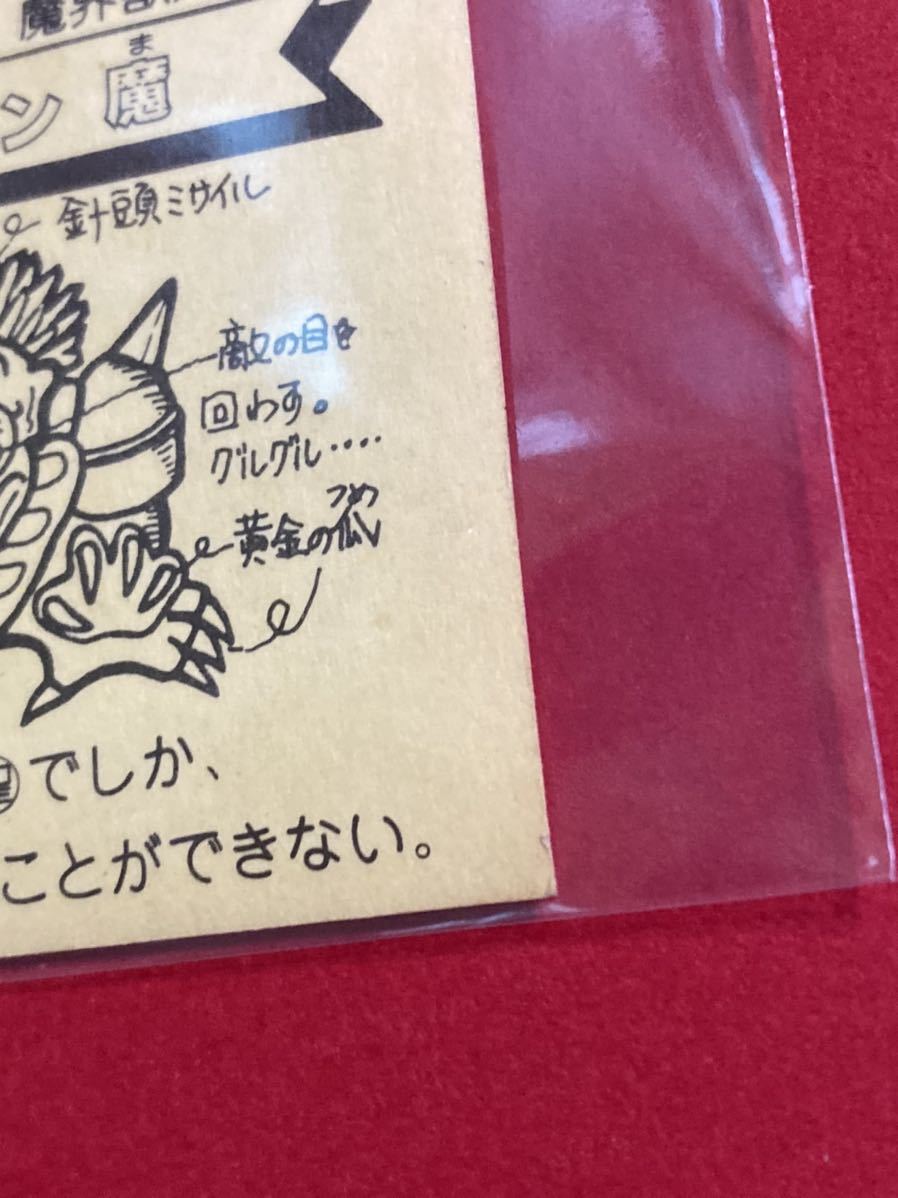 魔界
ま
ン 魔
針頭ミサイル
敵の目を
回わす。
グルグル‥‥
つめ
黄金の爪
でしか、
ことができない。